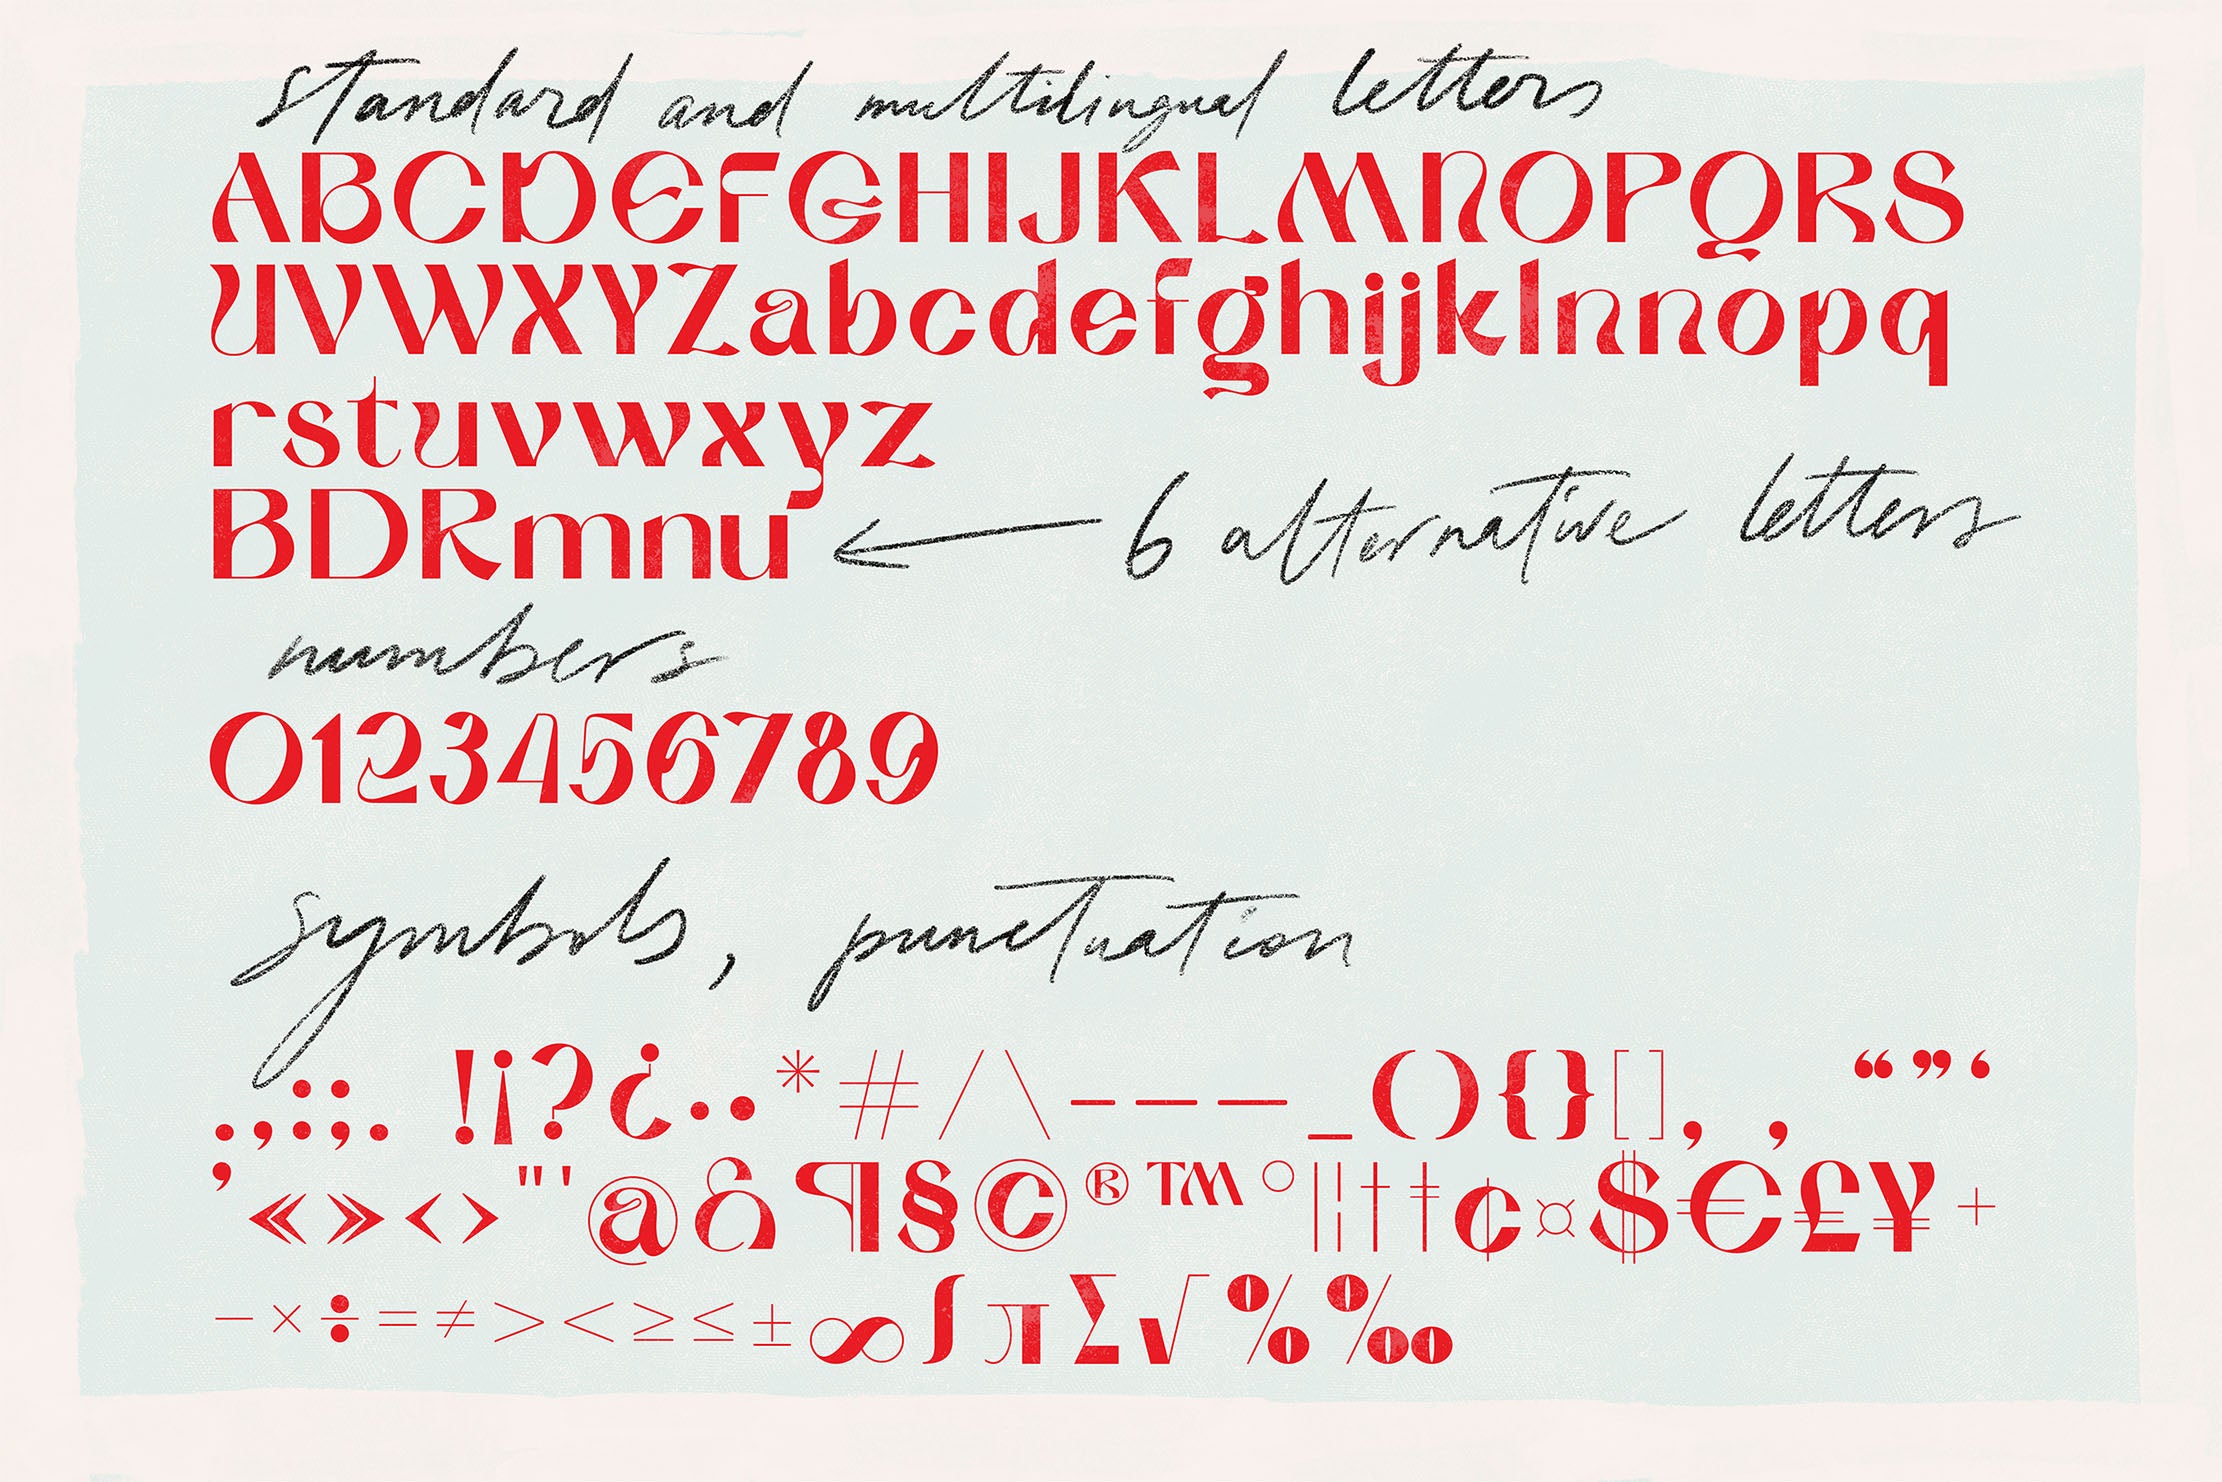 standard and multilingual letters
ABCDEFGHIJKLMNOPQRS
UVWXYZabcdefghijklnnopq
rstuvwxyz
BDRmnu ← 6 alternative letters
numbers
0123456789
symbols, punctuation
.,:;. !¡?¿·•*#/\-–—_(){}[], , “”‘
’«»‹›"'@&¶§©®™°|¦†‡¢¤$€£¥+
−×÷=≠><≥≤±∞∫π∑√%‰